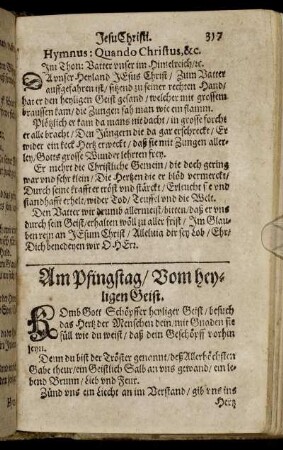 Jesu Christi. 317
Hymnus: Quando Christus, &c.
Im Thon: Vatter vnser im Himelreich / ꝛc.
DA vnser Heyland JEsus Christ / Zum Vatter
auffgefahren ist / sitzend zu seiner rechten Hand /
hat er den heyligen Geist gesand / welcher mit grossem
braussen kam / die Zungen sah man wie ein flamm.
Plötzlich er kam da mans nit dacht / in grosse forcht
er alle bracht / Den Jüngern die da gar erschreckt / Er
wider ein keck Hertz erweckt / daß sie mit Zungen aller-
ley / Gotts grosse Wunder lehrten frey.
Er mehrt die Christliche Gemein / die doch gering
war vnd sehr klein / Die Hertzen die er blöd vermerckt /
Durch seine krafft er tröst vnd stärckt / Erleucht sie vnd
standhafft erhelt / wider Tod / Teuffel vnd die Welt.
Den Vatter wir drumb allermeist / bitten / daß er vns
durch sein Geist / erhalten wöll zu aller frist / Im Glau-
ben rein an JEsum Christ / Alleluia dir sey Lob / Ehr /
Dich benedeyen wir O HErr.
Am Pfingstag / Vom hey-
ligen Geist.
KOmb Gott Schöpffer heyliger Geist / besuch
das Hertz der Menschen dein / mit Gnaden sie
füll wie du weist / daß dein Geschöpff vorhin
seyn.
Denn du bist der Tröster genant / deß Allerhöchsten
Gabe theur / ein Geistlich Salb an vns gewand / ein le-
bend Brunn / Lieb vnd Feur.
Zünd vns ein Liecht an im Verstand / gib vns ins
Hertz